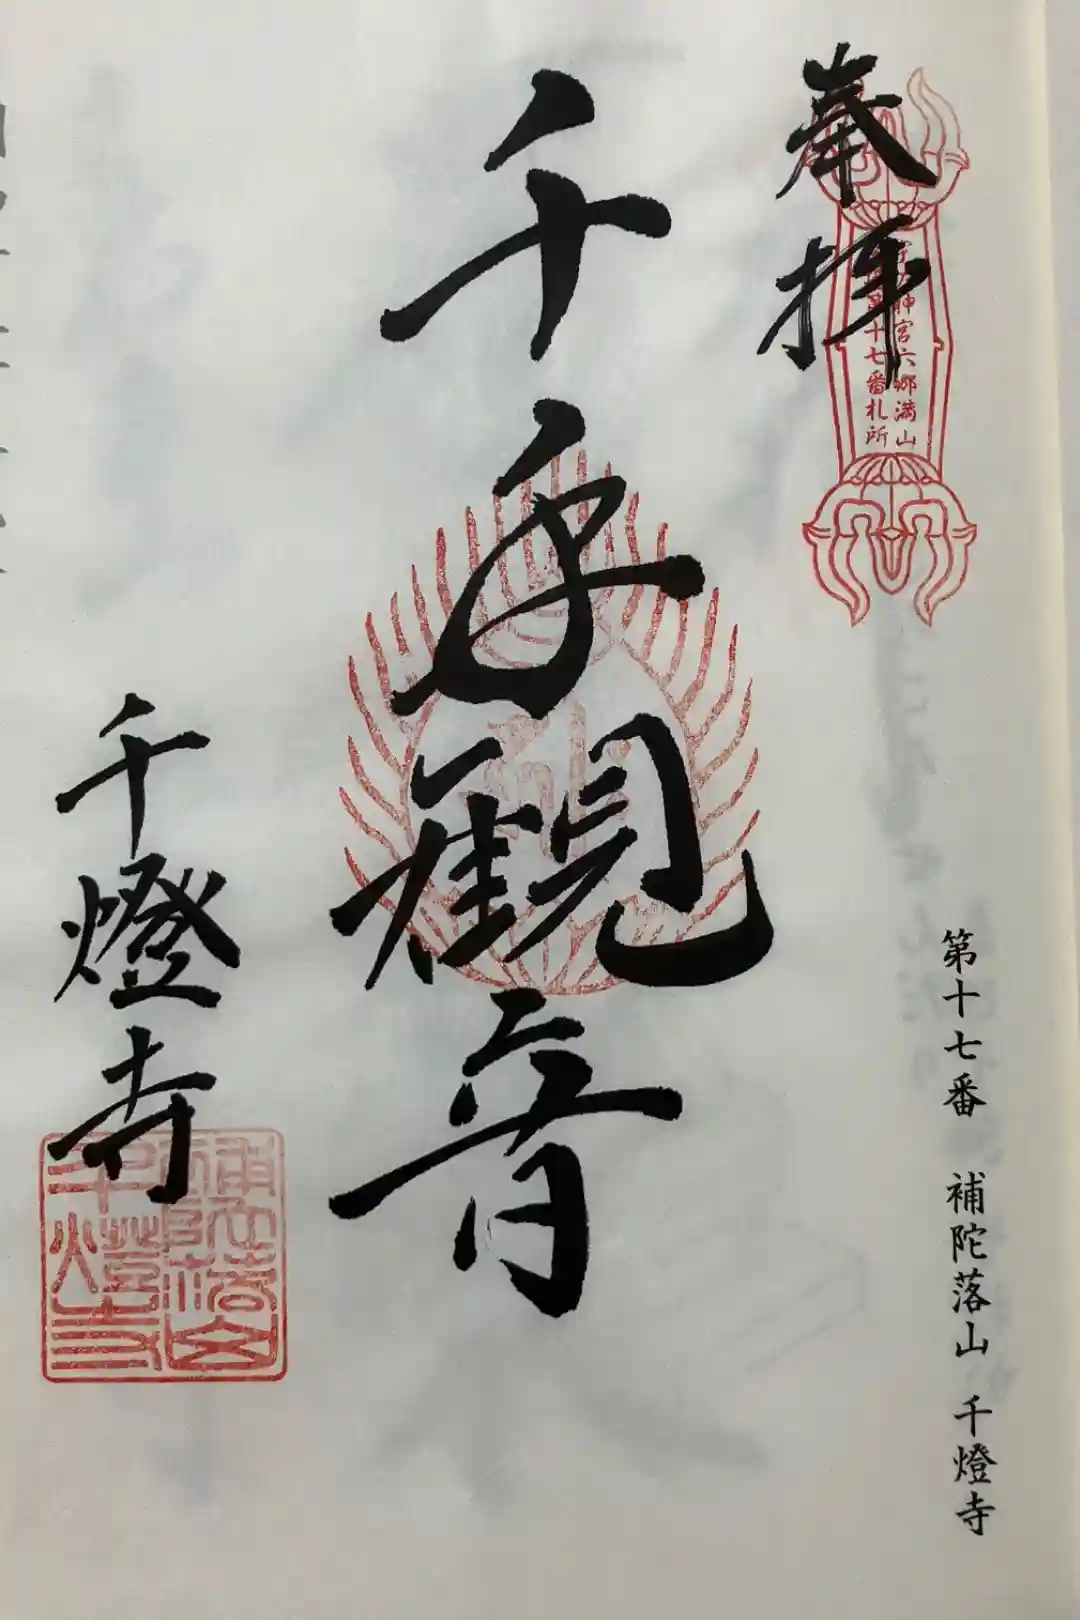 奉拝
神宮六郷満山
十七番札所
第十七番 補陀落山 千燈寺
千手観音
千燈寺
補陀落山
千燈寺